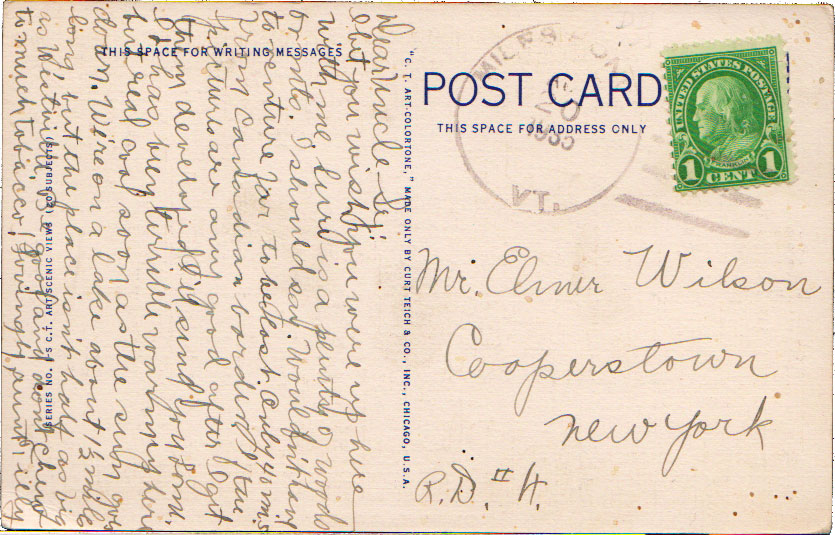 THIS SPACE FOR WRITING MESSAGES
Dear Uncle Si;
I bet you wish you were up here
with me. is a plenty o words
I should say. Wouldn't hav
to venture far to be lost. Only 40 mi's
from Canadian border. If the
pictures are any good after I get
them developed I'll send you som.
It has been terrible warm up here
but real cool soon as the sun goes
down. We're on a lake about 1½ mile
long but the place isn't half as big
as Be good and don't chew
to much tobacco. Lovingly, aunt Tilly
SERIES NO. U-S C.T. ART SCENIC VIEWS (20 SUBJECTS)
"C. T. ART-COLORTONE," MADE ONLY BY CURT TEICH & CO., INC., CHICAGO, U.S.A.
POST CARD
THIS SPACE FOR ADDRESS ONLY
MILES POND
20
VT.
UNITED STATES POSTAGE
FRANKLIN
1 CENT 1
Mr. Elmer Wilson
Cooperstown
New York
R.D. #4.